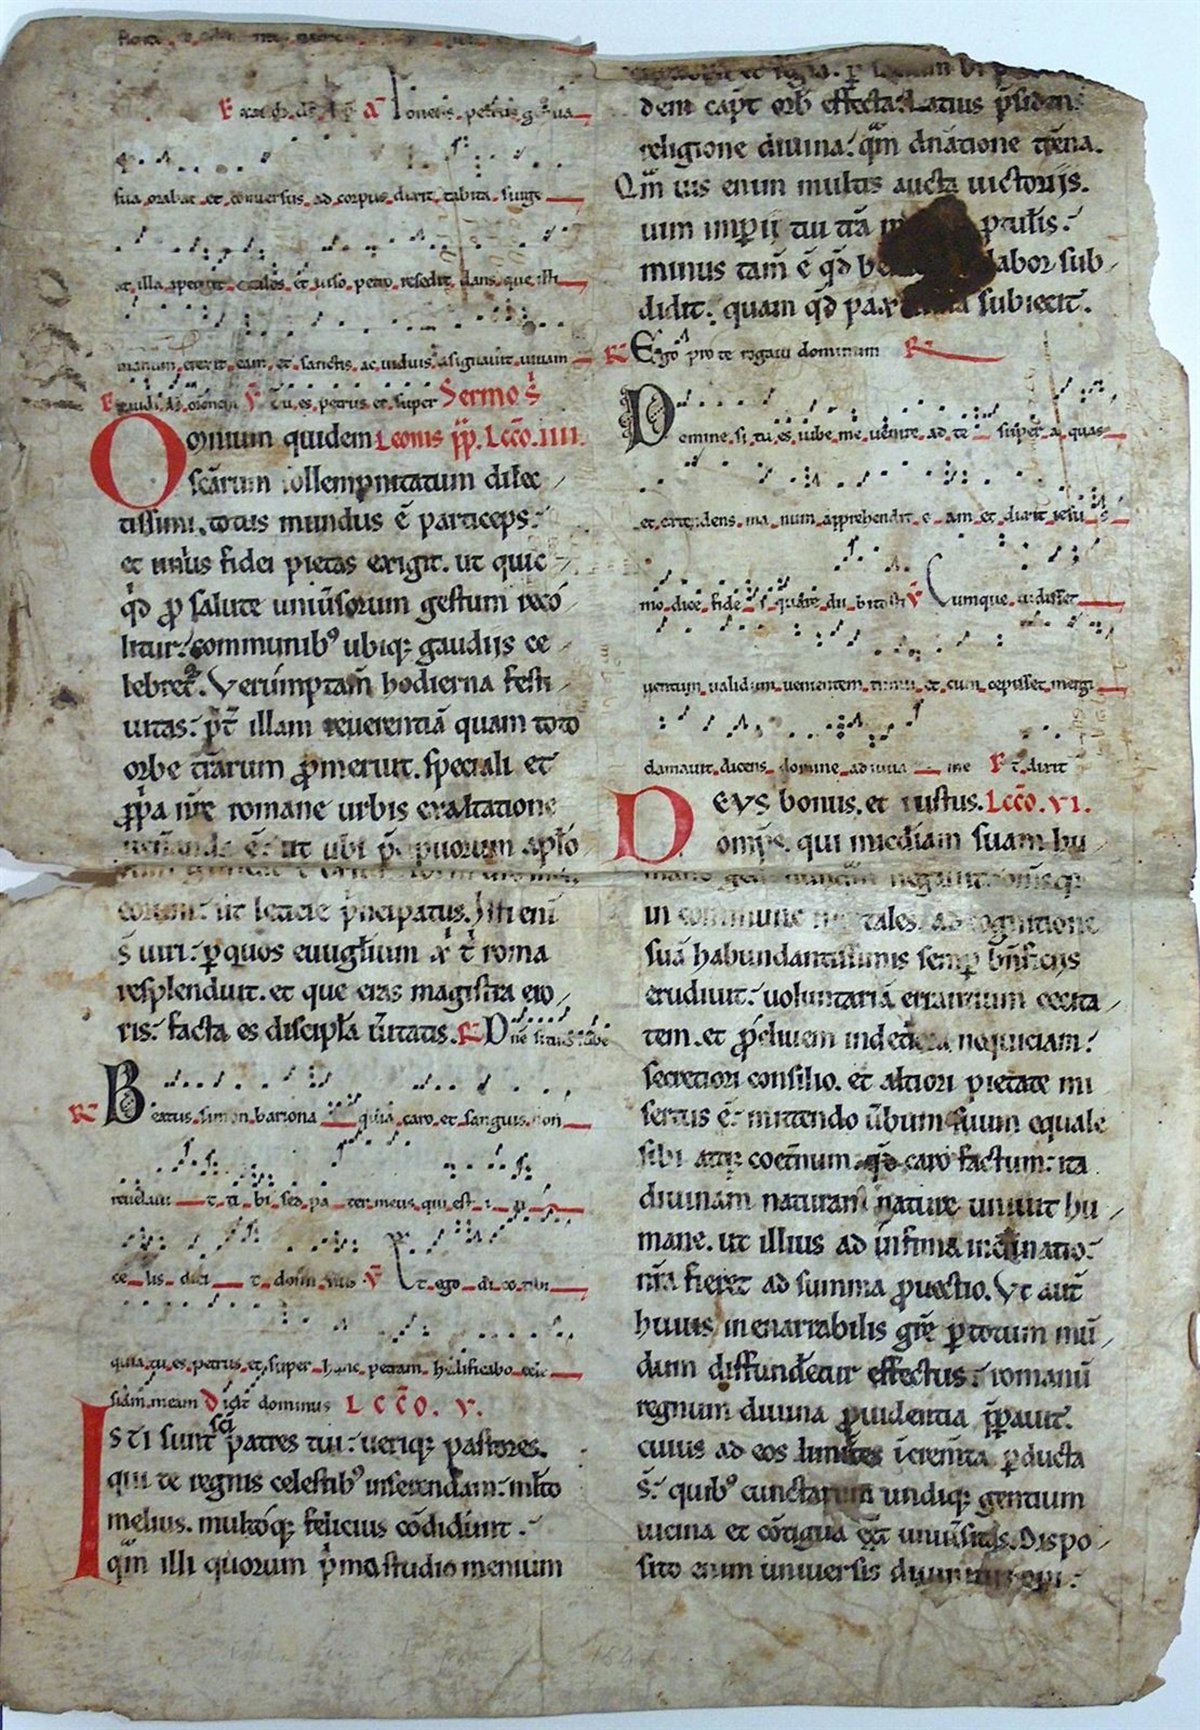 sua orabat et conversus ad corpus dixit tabita surge
at illa aperuit oculos et uiso petro resedit dans que illi
manum erexit eam et sanctis ac viduis asignauit uiuam
Tu es petrus et super Sermo s̄
Omnium quidem Leonis pp. Lcc̄o. IIII.
sc̄arum sollempnitatum dilec
tissimi. totus mundus ē particeps.
et unius fidei pietas exigit. ut quic
q̄d ꝓ salute uniūsorum gestum reco
litur. communib᷒ ubiq; gaudiis ce
lebret᷑. Verūmptam̄ hodierna festi
uitas. p̄t illam reuerentiā quam toto
orbe tr̄arum ꝓmeruit. speciali et
ꝓp̄a iure romane urbis exultatione
ueneranda ē. ut ubi p̄cipuorum apl̄o
eorum. ut leticie p̄ncipatus. Isti eni
s̄ uiri. ꝑ quos euuḡlium xp̄i t̄ roma
resplenduit. et que eras magistra erro
ris. facta es discipl̄a u̅itatis. R̄ Dn̄e si tu es iube
R̄ Beatus simon bariona quia caro et sanguis non
reuelauit tibi sed pater meus qui est in
celis dicit dominus V̄ Et ego dico tibi
quia tu es petrus et super hanc petram hedificabo eccle
siam meam Dicit dominus LCC̄O. V.
ISTI sunt sc̄i patres tui. uerique pastores.
qui te regnis celestib᷒ inserendam. multo
melius. multoq; felicius cōdidert.
qm̄ illi quorum p̄mo studio menium
dem capt̄ orb̄ effecta. Latius p̄sidens
religione diuina. qm̄ dn̄atione tr̄ena.
Qm̄ uis enim multis aucta uictoriis.
uim imperii tui tr̄a ptulis.
minus tam̄ ē q̄d be labor sub
didit. quam q̄d pax subiecit.
R̄ Ego pro te rogaui dominum R̄
Domine si tu es iube me uenire ad te super aquas
et extendens manum apprehendit eam et dixit iesus
modice fidei quare dubitasti V̄ Cumque uidisset
uentum ualidum uenientem timuit et cum cepisset mergi
clamauit dicens domine adiuua me Et dixit
DEUS bonus. et iustus. Lcc̄o. VI.
omps. qui mic̄diam suam hu
mano negauit. omisq;
in commune mortales. ad cognitione
suā habundantissimis semp̄ bn̄ficiis
erudiuit. uoluntariā errantium cecita
tem. et ꝓcliuem in deteriora nequiciam.
secretiori consilio. et altiori pietate mi
sertus ē. mittendo u̅bum suum equale
sibi atq; coet̄num. q̄d caro factum. ita
diuinam naturam nature uniuit hu
mane. ut illius ad infima inclinatio.
nr̄a fieret ad summa ꝓuectio. Ut aut̄
huius inenarrabilis gr̄e ꝑ totum mū
dum diffunderetur effectus. romanū
regnum diuina ꝓuidentia p̄parauit.
cuius ad eos limites increm̄ta ꝑducta
s̄. quib᷒ cunctarum undiq; gentium
uicina et cōtigua eēt uniūsitas. Dispo
sito enim universis diuinitus opi.